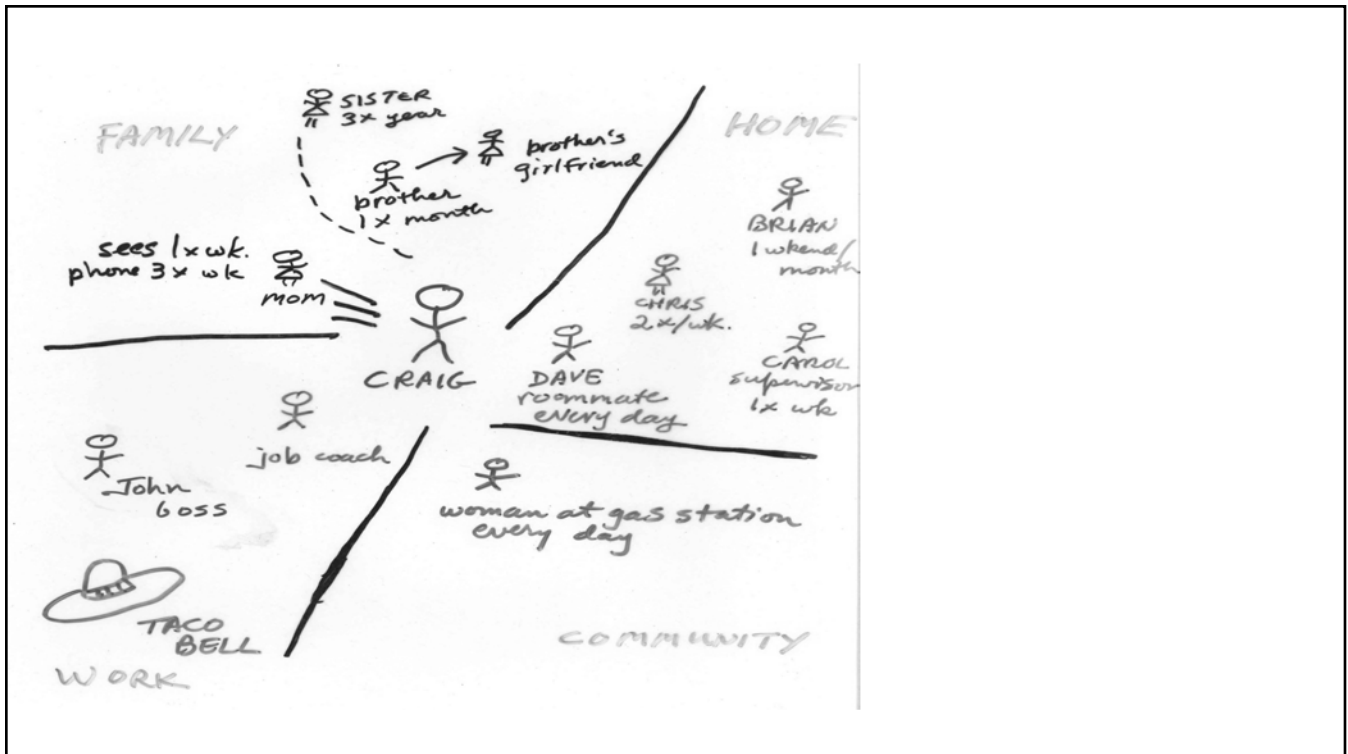 FAMILY
SISTER
3x year
brother's
girlfriend
brother
1 x month
sees 1x wk.
phone 3x wk
mom
CRAIG
HOME
BRIAN
1 wkend/
month
CHRIS
2x/wk.
DAVE
roommate
every day
CAROL
supervisor
1x wk
job coach
John
boss
TACO
BELL
WORK
woman at gas station
every day
COMMUNITY